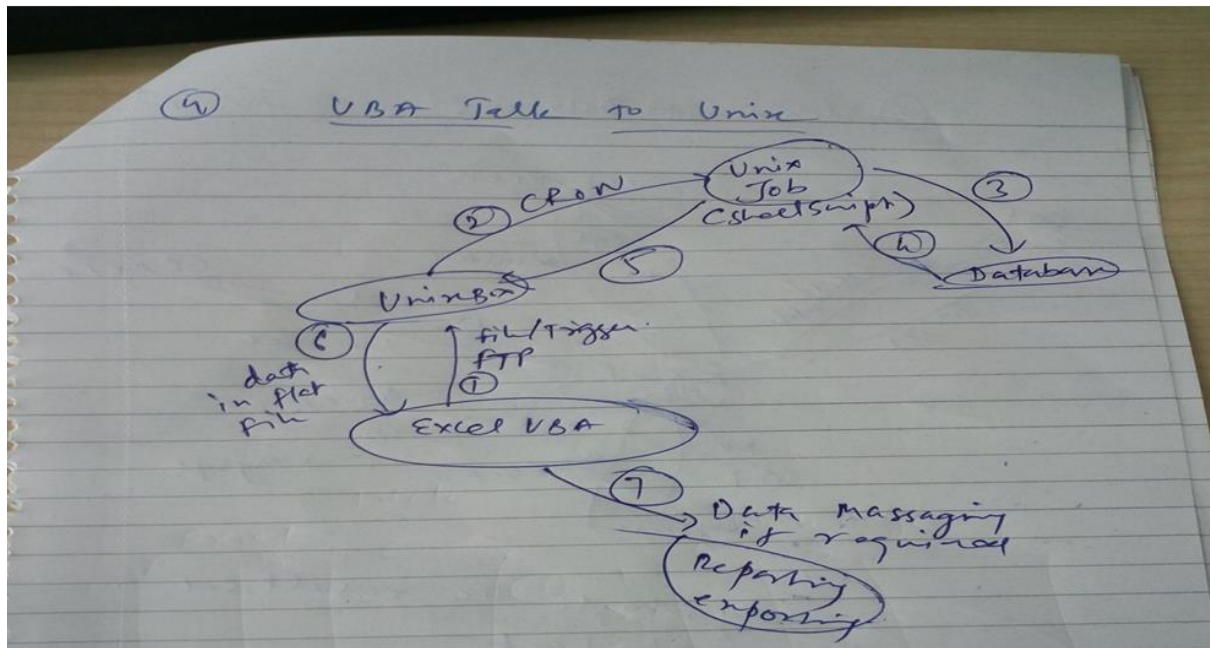 ④ VBA Talk to Unix
Unix
Job
(shellscript)
② CRON
③
④
⑤
Database
UnixBox
⑥
file/Trigger
FTP
①
data
in flat
file
Excel VBA
⑦
Data Massaging
if required
Reporting
exporting